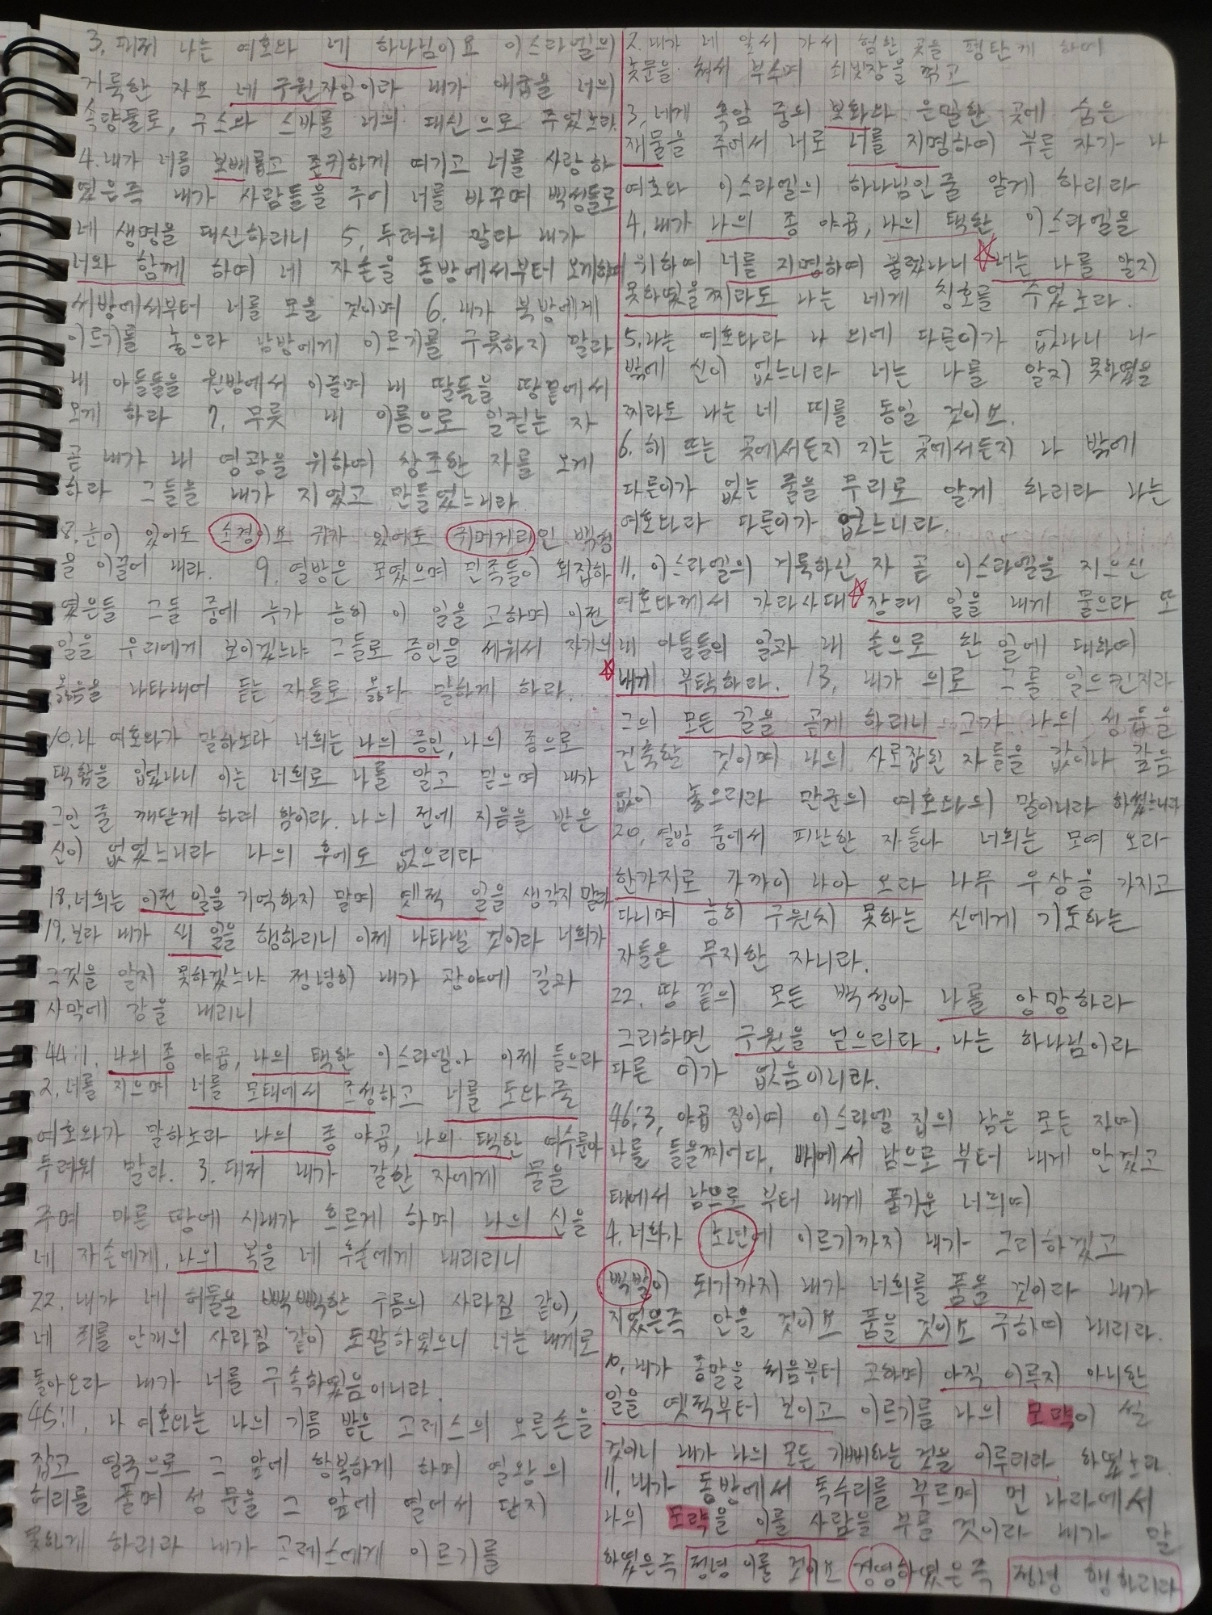 3. 대저 나는 여호와 네 하나님이요 이스라엘의
거룩한 자요 네 구원자임이라 내가 애굽을 너의
속량물로, 구스와 스바를 너의 대신으로 주었노라.
4. 내가 너를 보배롭고 존귀하게 여기고 너를 사랑하
였은즉 내가 사람들을 주어 너를 바꾸며 백성들로
네 생명을 대신하리니 5. 두려워 말라 내가
너와 함께 하여 네 자손을 동방에서부터 오게하며
서방에서부터 너를 모을 것이며 6. 내가 북방에게
이르기를 놓으라 남방에게 이르기를 구류하지 말라
내 아들들을 원방에서 이끌며 내 딸들을 땅끝에서
오게 하라 7. 무릇 내 이름으로 일컫는 자
곧 내가 내 영광을 위하여 창조한 자를 오게
하라 그들을 내가 지었고 만들었느니라
8. 눈이 있어도 소경이요 귀가 있어도 귀머거리인 백성
을 이끌어 내라. 9. 열방은 모였으며 민족들이 회집하
였은들 그들 중에 누가 능히 이 일을 고하며 이전
일을 우리에게 보이겠느냐 그들로 증인을 세워서 자기의
옳음을 나타내어 듣는 자들로 옳다 말하게 하라.
10. 나 여호와가 말하노라 너희는 나의 증인, 나의 종으로
택함을 입었나니 이는 너희로 나를 알고 믿으며 내가
그인 줄 깨닫게 하려 함이라. 나의 전에 지음을 받은
신이 없었느니라 나의 후에도 없으리라
18. 너희는 이전 일을 기억하지 말며 옛적 일을 생각지 말라
19. 보라 내가 새 일을 행하리니 이제 나타날 것이라 너희가
그것을 알지 못하겠느냐 정녕히 내가 광야에 길과
사막에 강을 내리니
44:1. 나의 종 야곱, 나의 택한 이스라엘아 이제 들으라
2. 너를 지으며 너를 모태에서 조성하고 너를 도와줄
여호와가 말하노라 나의 종 야곱, 나의 택한 여수룬아
두려워 말라. 3. 대저 내가 갈한 자에게 물을
주며 마른 땅에 시내가 흐르게 하며 나의 신을
네 자손에게, 나의 복을 네 후손에게 내리리니
22. 내가 네 허물을 빽빽한 구름의 사라짐 같이,
네 죄를 안개의 사라짐 같이 도말하였으니 너는 내게로
돌아오라 내가 너를 구속하였음이니라.
45:1. 나 여호와는 나의 기름 받은 고레스의 오른손을
잡고 열국으로 그 앞에 항복하게 하며 열왕의
허리를 풀며 성 문을 그 앞에 열어서 닫지
못하게 하리라 내가 고레스에게 이르기를
2. 내가 네 앞서 가서 험한 곳을 평탄케 하며
놋문을 쳐서 부수며 쇠빗장을 꺾고
3. 네게 흑암 중의 보화와 은밀한 곳에 숨은
재물을 주어서 너로 너를 지명하여 부른 자가 나
여호와 이스라엘의 하나님인줄 알게 하리라
4. 내가 나의 종 야곱, 나의 택한 이스라엘을
위하여 너를 지명하여 불렀나니 너는 나를 알지
못하였을찌라도 나는 네게 칭호를 주었노라.
5. 나는 여호와라 나 외에 다른이가 없나니 나
밖에 신이 없느니라 너는 나를 알지 못하였을
찌라도 나는 네 띠를 동일 것이요.
6. 해 뜨는 곳에서든지 지는 곳에서든지 나 밖에
다른이가 없는 줄을 무리로 알게 하리라 나는
여호와라 다른이가 없느니라.
11. 이스라엘의 거룩하신 자 곧 이스라엘을 지으신
여호와께서 가라사대 장래 일을 내게 물으라 또
내 아들들의 일과 내 손으로 한 일에 대하여
내게 부탁하라. 13. 내가 의로 그를 일으킨지라
그의 모든 길을 곧게 하리니 그가 나의 성읍을
건축할 것이며 나의 사로잡힌 자들을 값이나 갚음
없이 놓으리라 만군의 여호와의 말이니라 하셨느니라
20. 열방 중에서 피난한 자들아 너희는 모여 오라
한가지로 가까이 나아 오라 나무 우상을 가지고
다니며 능히 구원치 못하는 신에게 기도하는
자들은 무지한 자니라.
22. 땅 끝의 모든 백성아 나를 앙망하라
그리하면 구원을 얻으리라. 나는 하나님이라
다른 이가 없음이니라.
46:3. 야곱 집이여 이스라엘 집의 남은 모든 자여
나를 들을찌어다, 배에서 남으로 부터 내게 안겼고
태에서 남으로 부터 내게 품기운 너희여
4. 너희가 노년에 이르기까지 내가 그리하겠고
백발이 되기까지 내가 너희를 품을 것이라 내가
지었은즉 안을 것이요 품을 것이요 구하여 내리라.
10. 내가 종말을 처음부터 고하며 아직 이루지 아니한
일을 옛적부터 보이고 이르기를 나의 모략이 설
것이니 내가 나의 모든 기뻐하는 것을 이루리라 하였노라.
11. 내가 동방에서 독수리를 부르며 먼 나라에서
나의 모략을 이룰 사람을 부를 것이라 내가 말
하였은즉 정녕 이룰 것이요 경영하였은즉 정녕 행하리라